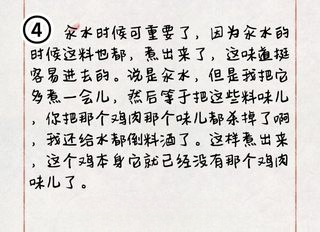 ④ 汆水时候可重要了，因为汆水的
时候这料也都，煮出来了，这味道挺
容易进去的。说是汆水，但是我把它
多煮一会儿，然后等于把这些料味儿
，你把那个鸡肉那个味儿都杀掉了啊
，我还给水都倒料洒了。这样煮出来
，这个鸡本身它就已经没有那个鸡肉
味儿了。